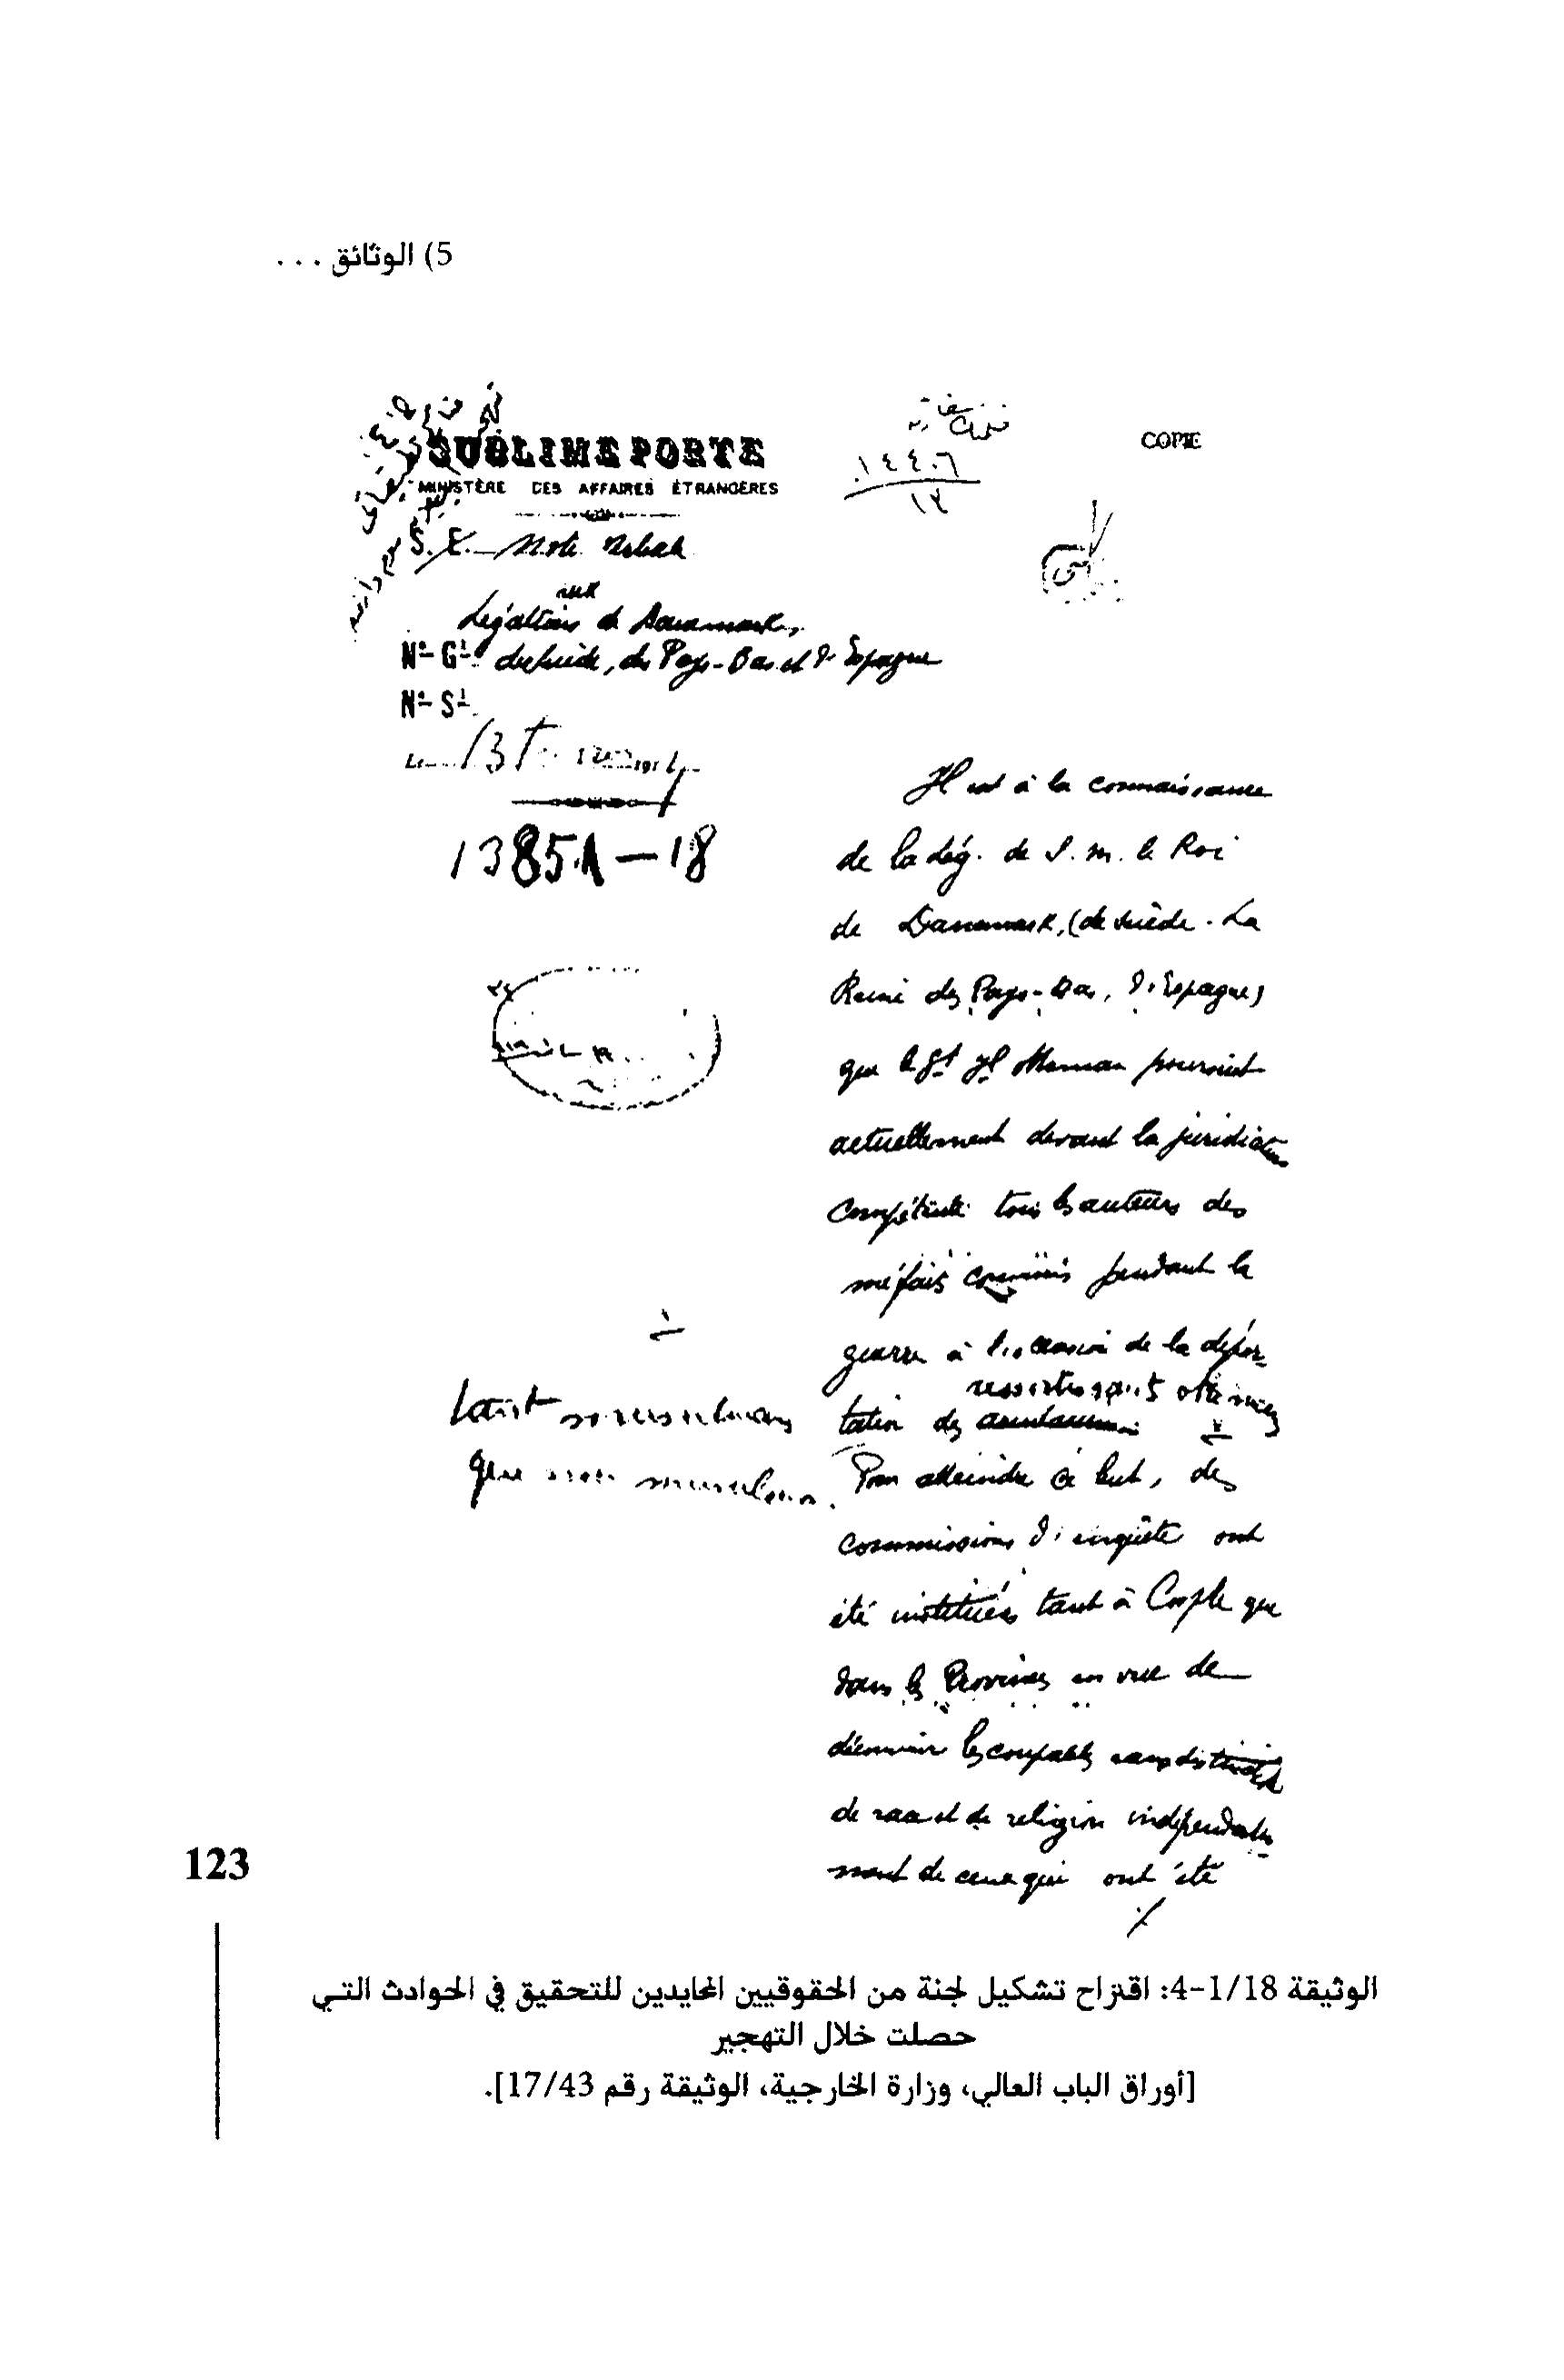 5) الوثائق . . .
SUBLIME PORTE
COPIE
MINISTÈRE DES AFFAIRES ÉTRANGÈRES
١٤٤٠٦
١٢
S. E. Note Verbale
aux
Légations de Danemark,
Nº Gl de Suède, des Pays-Bas et d'Espagne
Nº Sl
Le 13
13851-18
Il est à la connaissance
de la Lég. de S. M. le Roi
de Danemark, (de Suède. La
Reine des Pays-Bas, d'Espagne)
que le Gt Il Ottoman poursuit
actuellement devant la juridiction
compétente tous les auteurs des
méfaits commis pendant la
guerre à l'occasion de la dépor-
ressortissants ottomans
tation des
tant musulmans
que non musulmans.
Pour atteindre ce but, des
commissions d'enquête ont
été instituées tant à Cople que
dans les Provinces en vue de
découvrir les coupables sans distinction
de race et de religion indépendam-
ment de ceux qui ont été
./.
123
الوثيقة 1/18-4: اقتراح تشكيل لجنة من الحقوقيين المحايدين للتحقيق في الحوادث التي
حصلت خلال التهجير
[أوراق الباب العالي، وزارة الخارجية، الوثيقة رقم 17/43].